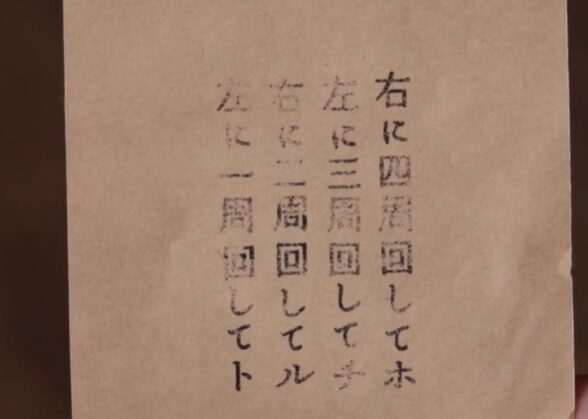 右に四周回してホ
左に三周回してチ
右に二周回してル
左に一周回してト